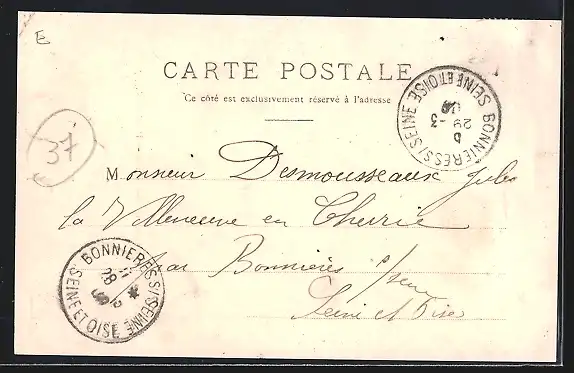 E
CARTE POSTALE
Ce côté est exclusivement réservé à l'adresse
BONNIERES S/ SEINE
SEINE ET OISE
29 - 3
37
Monsieur Desmousseaux Jules
la Villeneuve en Chevrie
par Bonnières s/ Seine
Seine et Oise
BONNIERES S/ SEINE
SEINE ET OISE